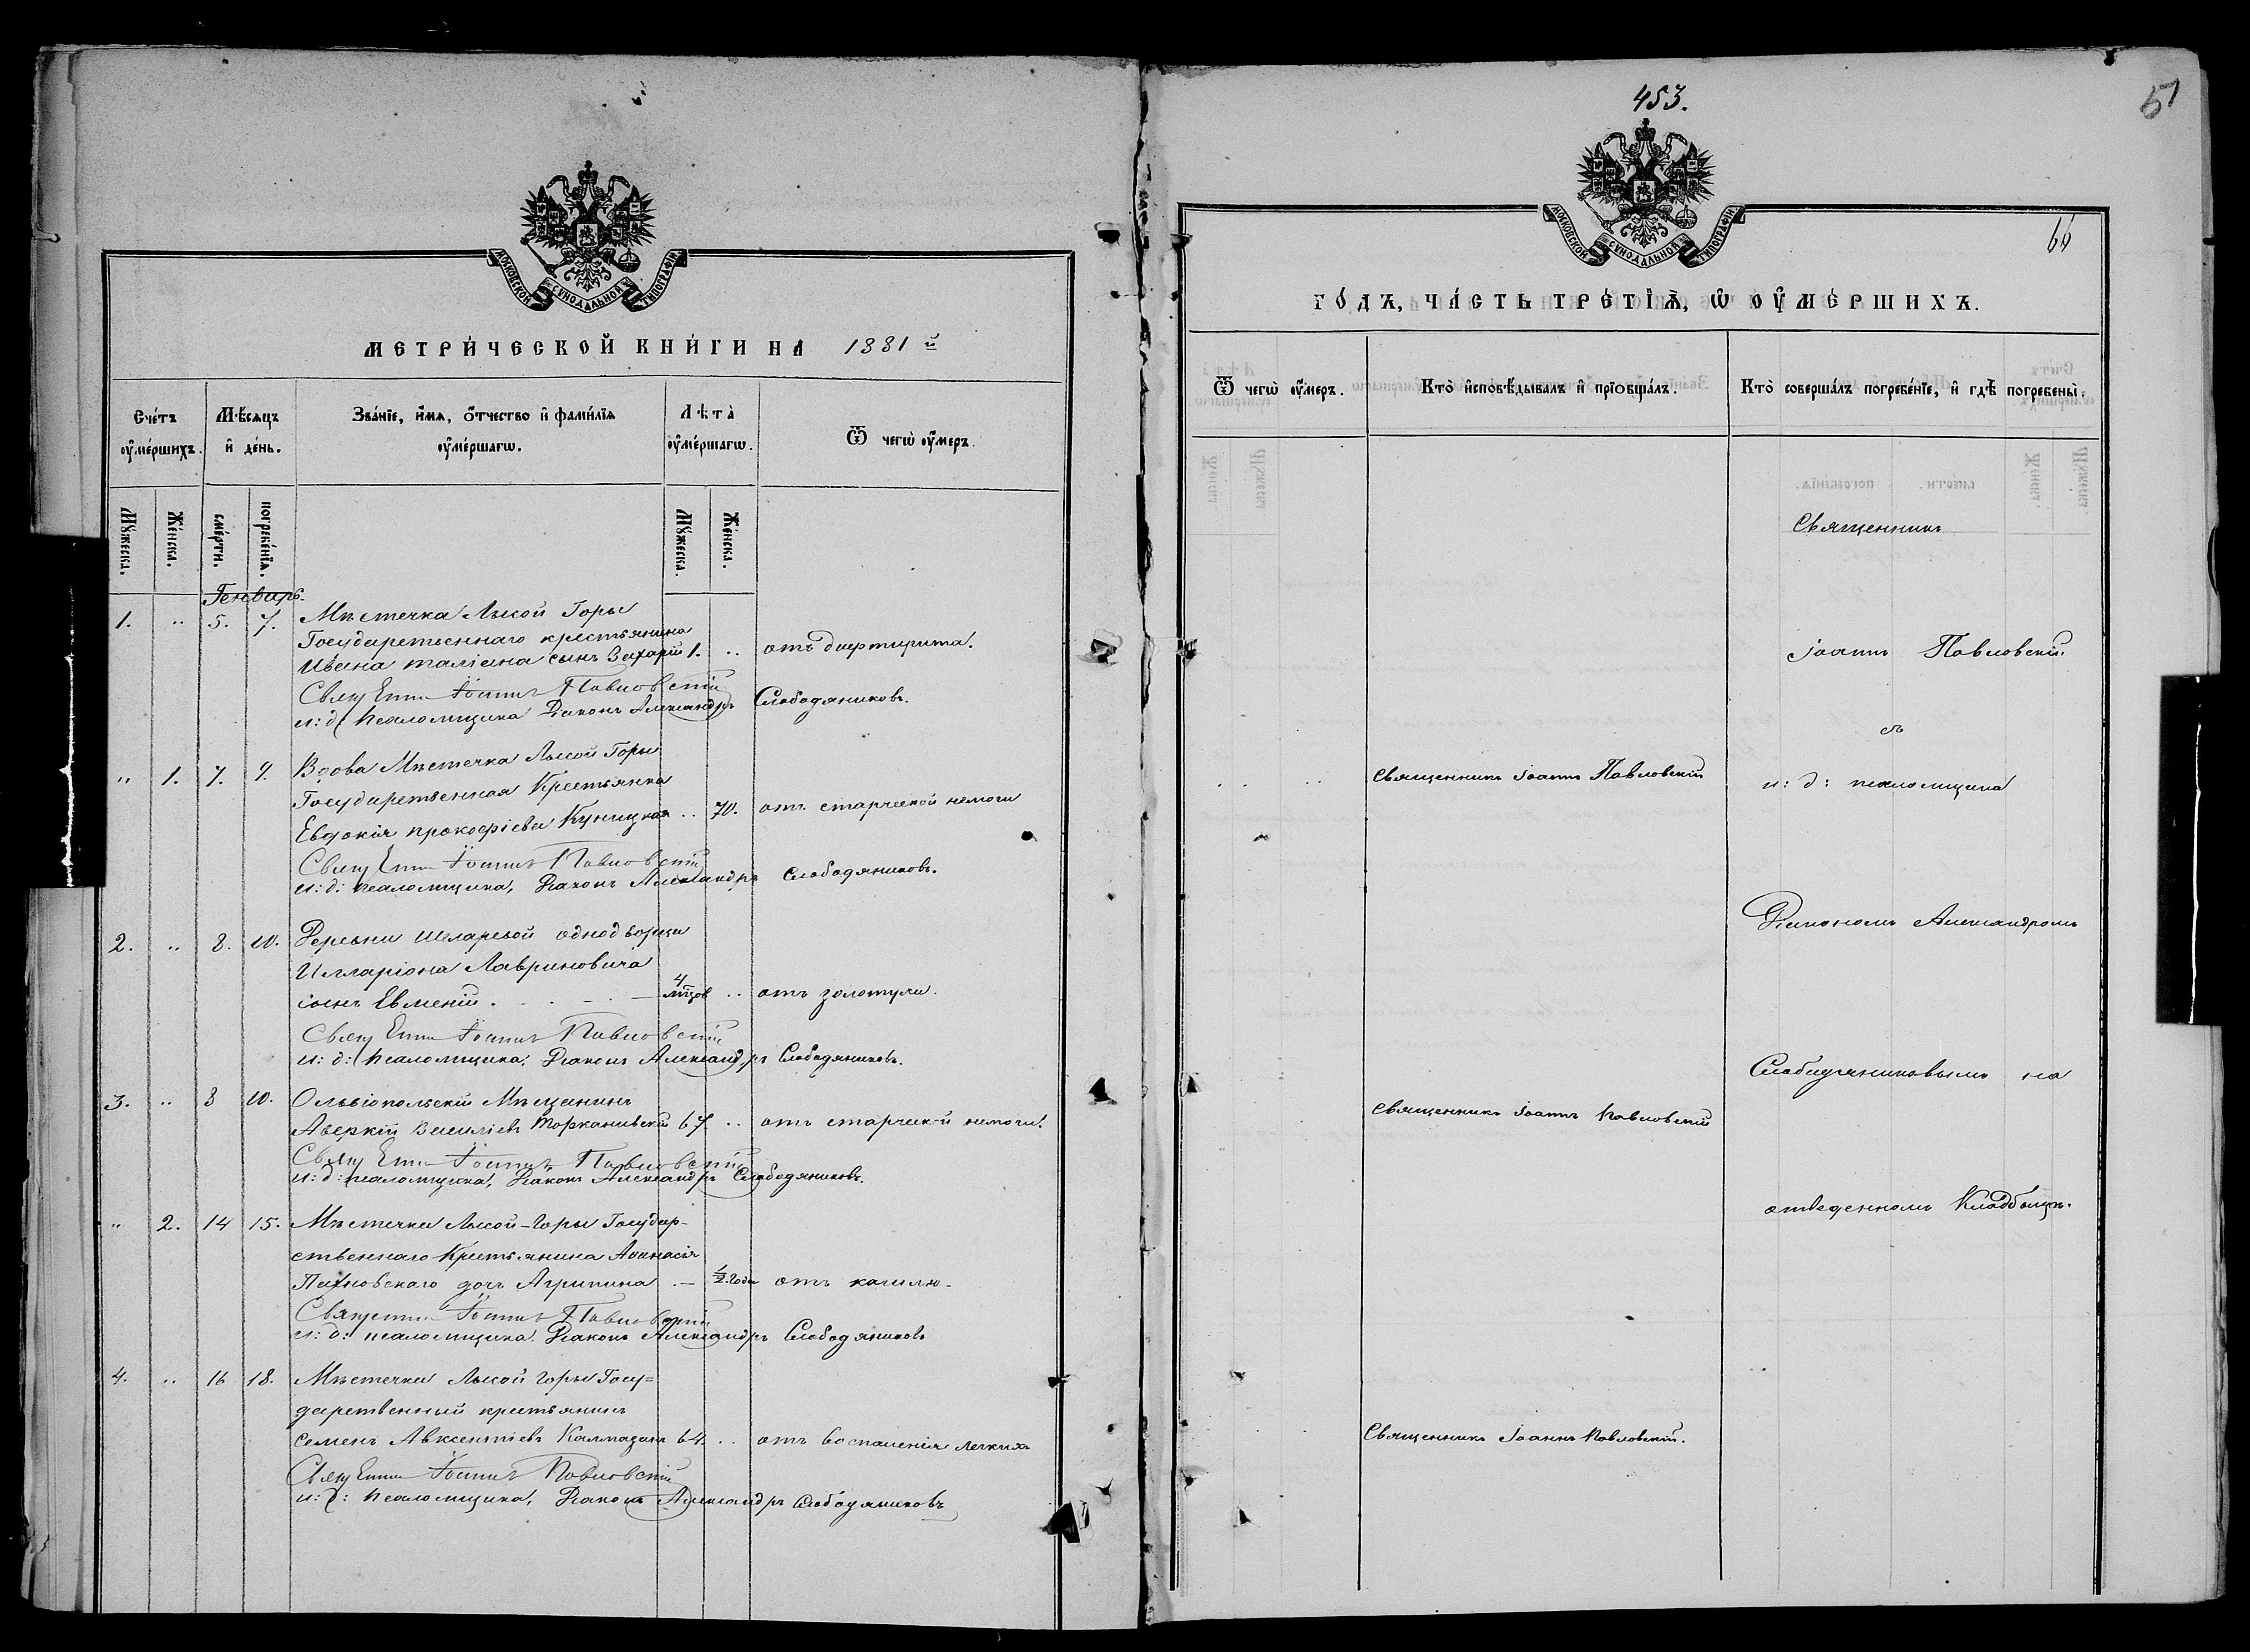 МОСКОВСКОЙ СѴНОДАЛЬНОЙ ТИПОГРАФІИ
МЕТРИ́ЧЕСКОЙ КНИ́ГИ НА 1881й
Сче́тъ ᲂу҆ме́ршихъ.
Мѣ́сѧцъ и҆ де́нь.
Зва́нїе, и҆́мѧ, ѻ҆́тчество и҆ фами́лїѧ ᲂу҆ме́ршагѡ.
Лѣта̀ ᲂу҆ме́ршагѡ.
Ѿ чегѡ̀ ᲂу҆́меръ.
Мꙋ́жеска.
Же́нска.
сме́рти.
погребе́нїѧ.
Мꙋ́жеска.
Же́нска.
Генварь.
1. " 5. 7. Мѣстечка Лысой Горы
Государственнаго крестьянина
Ивана сынъ Захарій 1. " отъ дифтирита.
Священ Іоаннъ Павловскій
и: д: псаломщика Діаконъ Александръ Слободяниковъ.
" 1. 7. 9. Вдова Мѣстечка Лысой Горы
Государственная Крестьянка
Евдокія Прокофіева Куницкая " 70. отъ старческой немочи
Священ Іоаннъ Павловскій
и: д: псаломщика, Діаконъ Александръ Слободяниковъ.
2. " 8. 10. Деревни Шларевой однодворца
Илларіона Лавриновича
сынъ Евменій. 4 мцов " отъ золотухи.
Священ Іоаннъ Павловскій
и: д: псаломщика, Діаконъ Александръ Слободяниковъ.
3. " 8 10. Ольвіопольскій Мѣщанинъ
Аверкій Василіевъ Торканивскій 67. " отъ старческой немочи.
Священ Іоаннъ Павловскій
и: д: псаломщика, Діаконъ Александръ Слободяниковъ.
" 2. 14 15. Мѣстечка Лысой-Горы Государ-
ственнаго Крестьянина Аѳанасія
Пахновскаго дочь Агрипина. — ½ года отъ кашлю.
Священ Іоаннъ Павловскій
и: д: псаломщика, Діаконъ Александръ Слободяниковъ
4. " 16 18. Мѣстечка Лысой Горы Госу=
дарственный крестьянинъ
Семенъ Авксентіевъ Калмазанъ 64. " отъ воспаленія легкихъ
Священ Іоаннъ Павловскій
и: д: псаломщика, Діаконъ Александръ Слободяниковъ
453.
51
66
МОСКОВСКОЙ СѴНОДАЛЬНОЙ ТИПОГРАФІИ
ГО́ДЪ, ЧА́СТЬ ТРЕ́ТЇѦ, Ѡ҆ ОУ҆МЕ́РШИХЪ.
Ѿ чегѡ̀ ᲂу҆́меръ.
Кто̀ и҆сповѣ́дывалъ и҆ прїѡбща́лъ.
Кто̀ соверша́лъ погребе́нїе, и҆ гдѣ̀ погребены̀.
Священникъ
Іоаннъ Павловскій.
съ
Священникъ Іоаннъ Павловскій
и: д: псаломщика
Діакономъ Александромъ
Слободяниковымъ на
Священникъ Іоаннъ Павловскій
отведенномъ Кладбищѣ.
Священникъ Іоаннъ Павловскій.